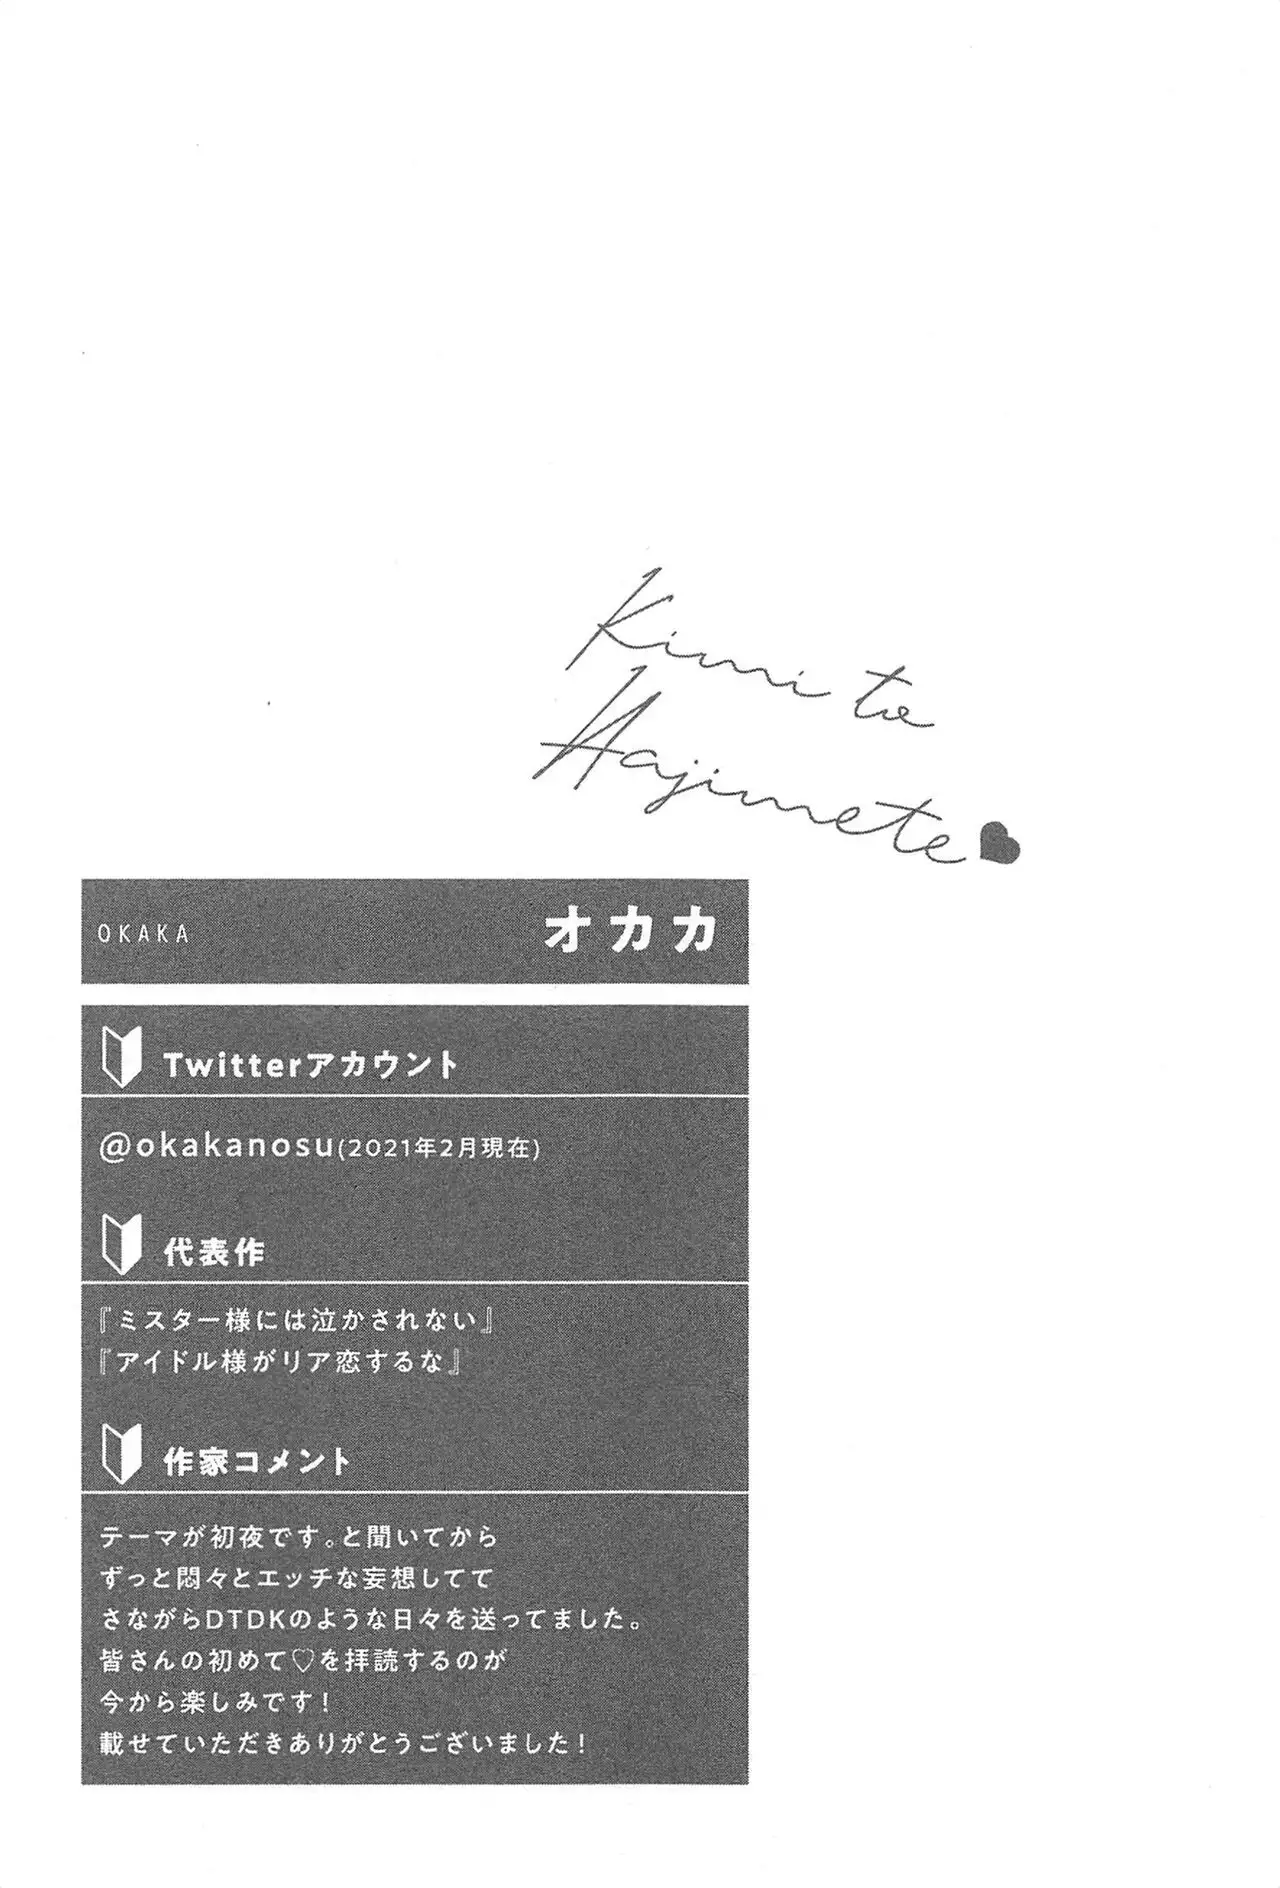 Kimi to
Hajimete
OKAKA
オカカ
Twitterアカウント
@okakanosu(2021年2月現在)
代表作
『ミスター様には泣かされない』
『アイドル様がリア恋するな』
作家コメント
テーマが初夜です。と聞いてから
ずっと悶々とエッチな妄想してて
さながらDTDKのような日々を送ってました。
皆さんの初めて♡を拝読するのが
今から楽しみです!
載せていただきありがとうございました!